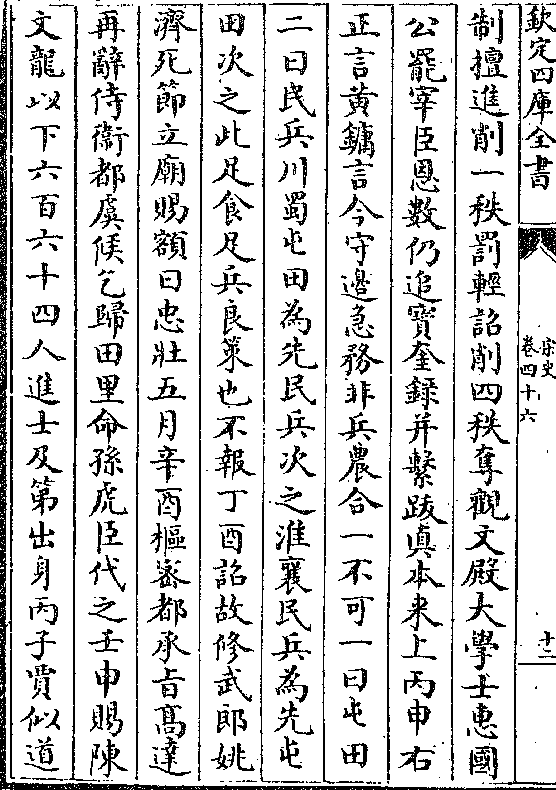 欽定四庫全書
宋史
卷四十六
十二
制擅進削一秩罰輕詔削四秩奪觀文殿大學士惠國
公罷宰臣恩數仍追寳奎録并繫跋真本来上丙申右
正言黄鏞言今守邊急務非兵農合一不可一曰屯田
二曰民兵川蜀屯田為先民兵次之淮襄民兵為先屯
田次之此足食足兵良策也不報丁酉詔故修武郎姚
濟死節立廟賜額曰忠壯五月辛酉樞密都承㫖髙達
再辭侍衞都虞候乞歸田里命孫虎臣代之壬申賜陳
文龍以下六百六十四人進士及第出身丙子賈似道